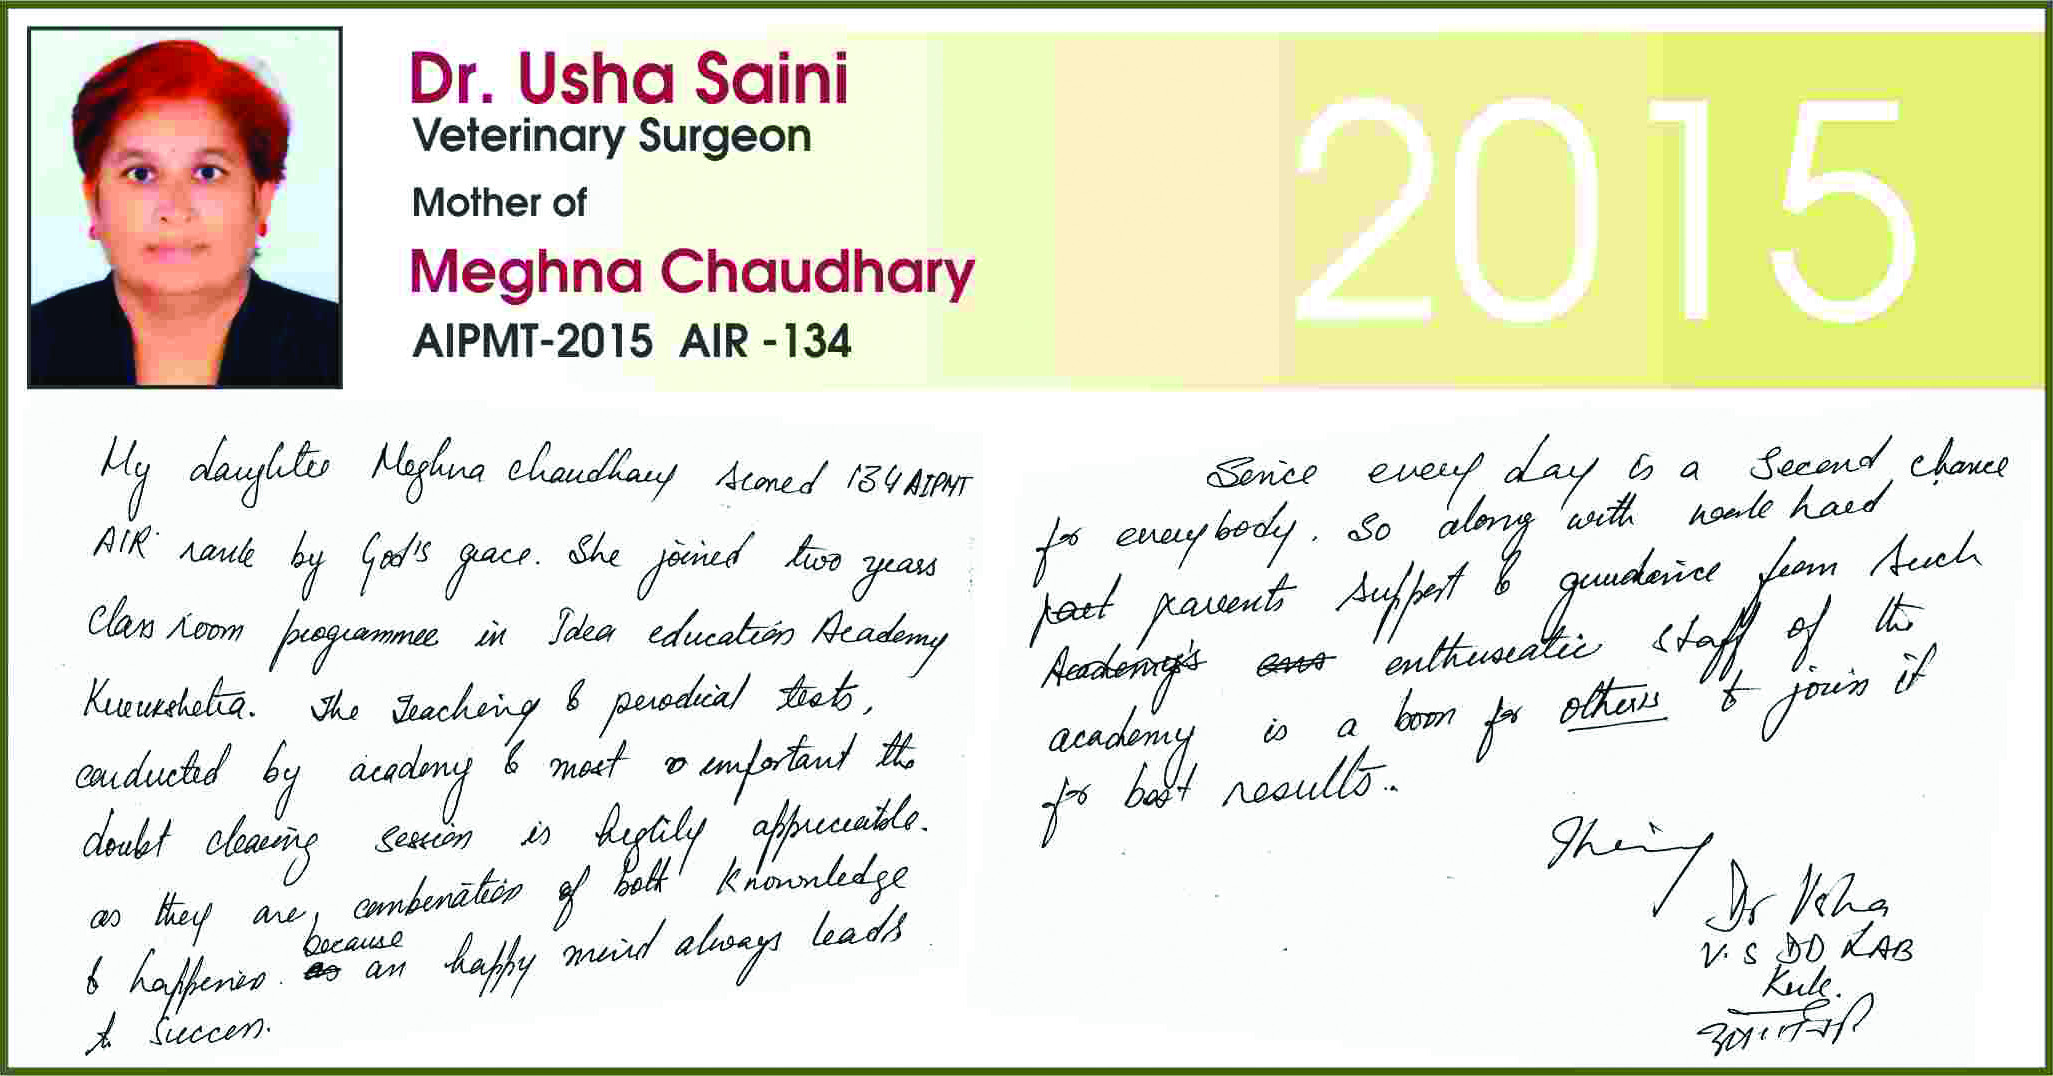 Dr. Usha Saini
Veterinary Surgeon
Mother of
Meghna Chaudhary
AIPMT-2015 AIR -134
2015
My daughter Meghna Chaudhary scored 134 AIPMT
AIR rank by God's grace. She joined two years
Class room programmee in Idea education Academy
Kurukshetra. The Teaching & perodical tests,
conducted by academy & most important the
doubt clearing session is highly appreciable.
as they are, combination of both Knownledge
& happenies. because
as an happy mind always leads
to success.
Sence every day is a Second chance
for everybody. So along with work hard
part parents support & guidance from such
Academy's enthuseatic staff of the
academy is a boon for others to join it
for best results..
Dr Usha
V.S DD LAB
Kuk.